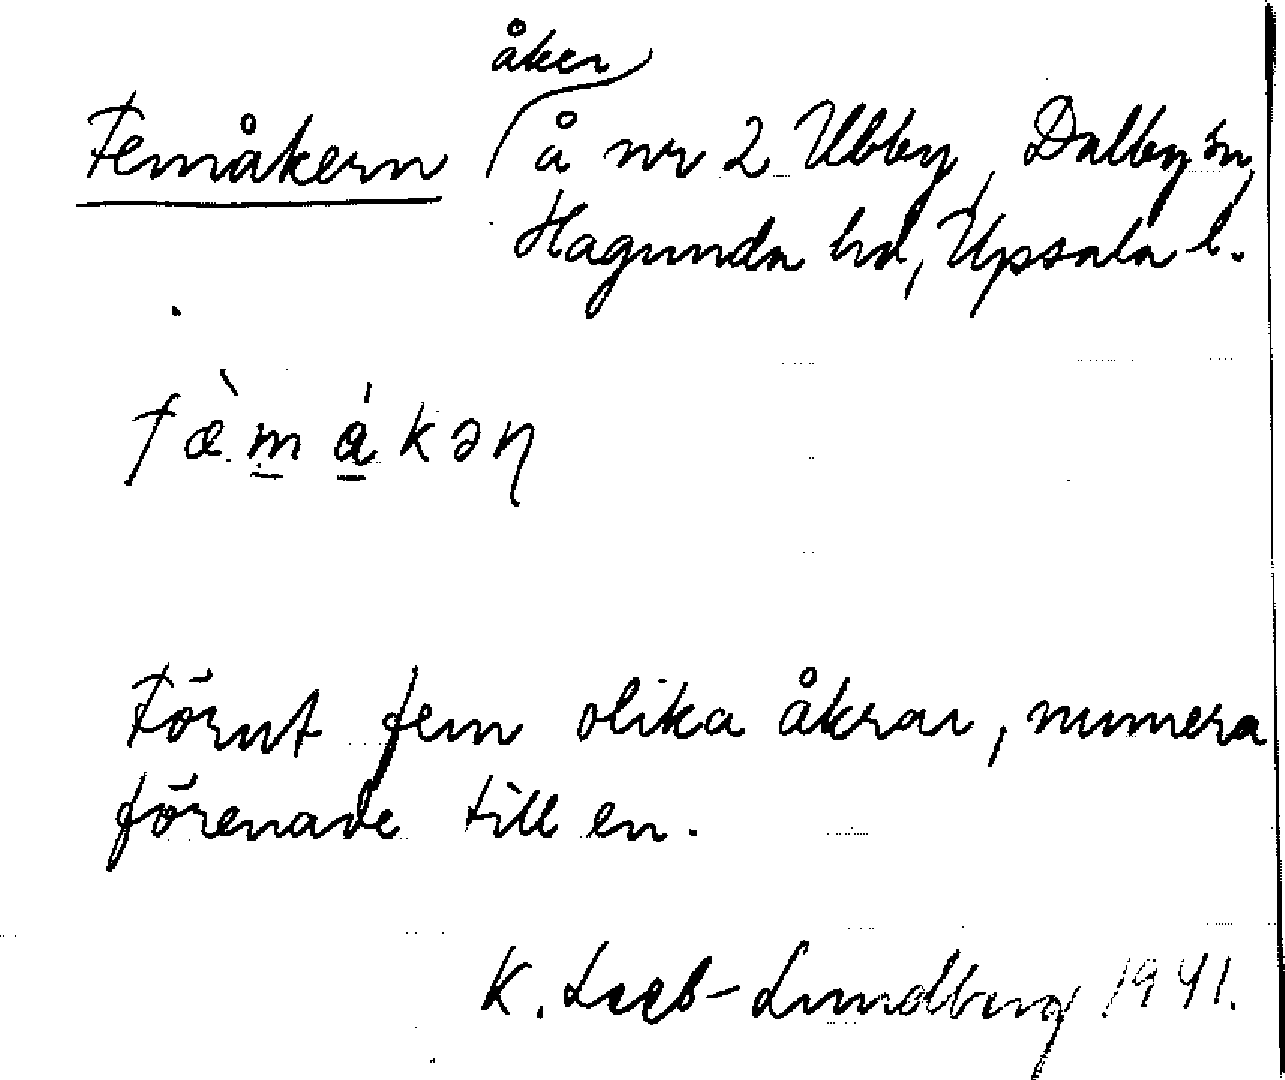 åker
Femåkern å nr 2 Ubby, Dalby sn,
Hagunda hd, Uppsala l.
fæ̀m å̀kəɳ
Förut fem olika åkrar, numera
förenade till en.
K. Leeb-Lundberg 1941.